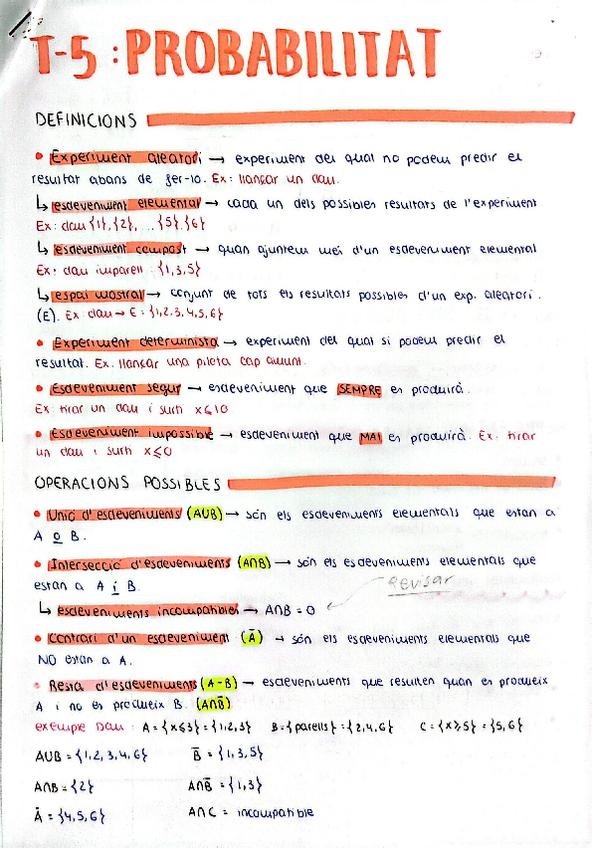 T-5 : PROBABILITAT
DEFINICIONS
• Experiment aleatori → experiment del qual no podem predir el
resultat abans de fer-lo. Ex: llançar un dau.
↳ esdeveniment elemental → cada un dels possibles resultats de l'experiment
Ex: dau {1}, {2}, ... {5}, {6}
↳ esdeveniment compost → quan ajuntem més d'un esdeveniment elemental
Ex: dau imparell : {1,3,5}
↳ espai mostral → conjunt de tots els resultats possibles d'un exp. aleatori.
(E). Ex: dau → E = {1,2,3,4,5,6}
• Experiment determinista → experiment del qual si podem predir el
resultat. Ex. llançar una pilota cap amunt.
• Esdeveniment segur → esdeveniment que SEMPRE es produirà.
Ex: tirar un dau i surti x≤10
• Esdeveniment impossible → esdeveniment que MAI es produirà. Ex: tirar
un dau i surti x≤0
OPERACIONS POSSIBLES
• Unió d'esdeveniments (AUB) → són els esdeveniments elementals que estan a
A o B.
• Intersecció d'esdeveniments (A∩B) → són els esdeveniments elementals que
estan a A i B.
revisar
↳ esdeveniments incompatibles → A∩B = 0
• Contrari d'un esdeveniment (Ā) → són els esdeveniments elementals que
NO estan a A.
• Resta d'esdeveniments (A-B) → esdeveniments que resulten quan es produeix
A i no es produeix B. (A∩B̄)
exemple Dau : A = {x≤3} = {1,2,3} B = {parells} = {2,4,6} C = {x≥5} = {5,6}
AUB = {1,2,3,4,6} B̄ = {1,3,5}
A∩B = {2} A∩B̄ = {1,3}
Ā = {4,5,6} A∩C = incompatible